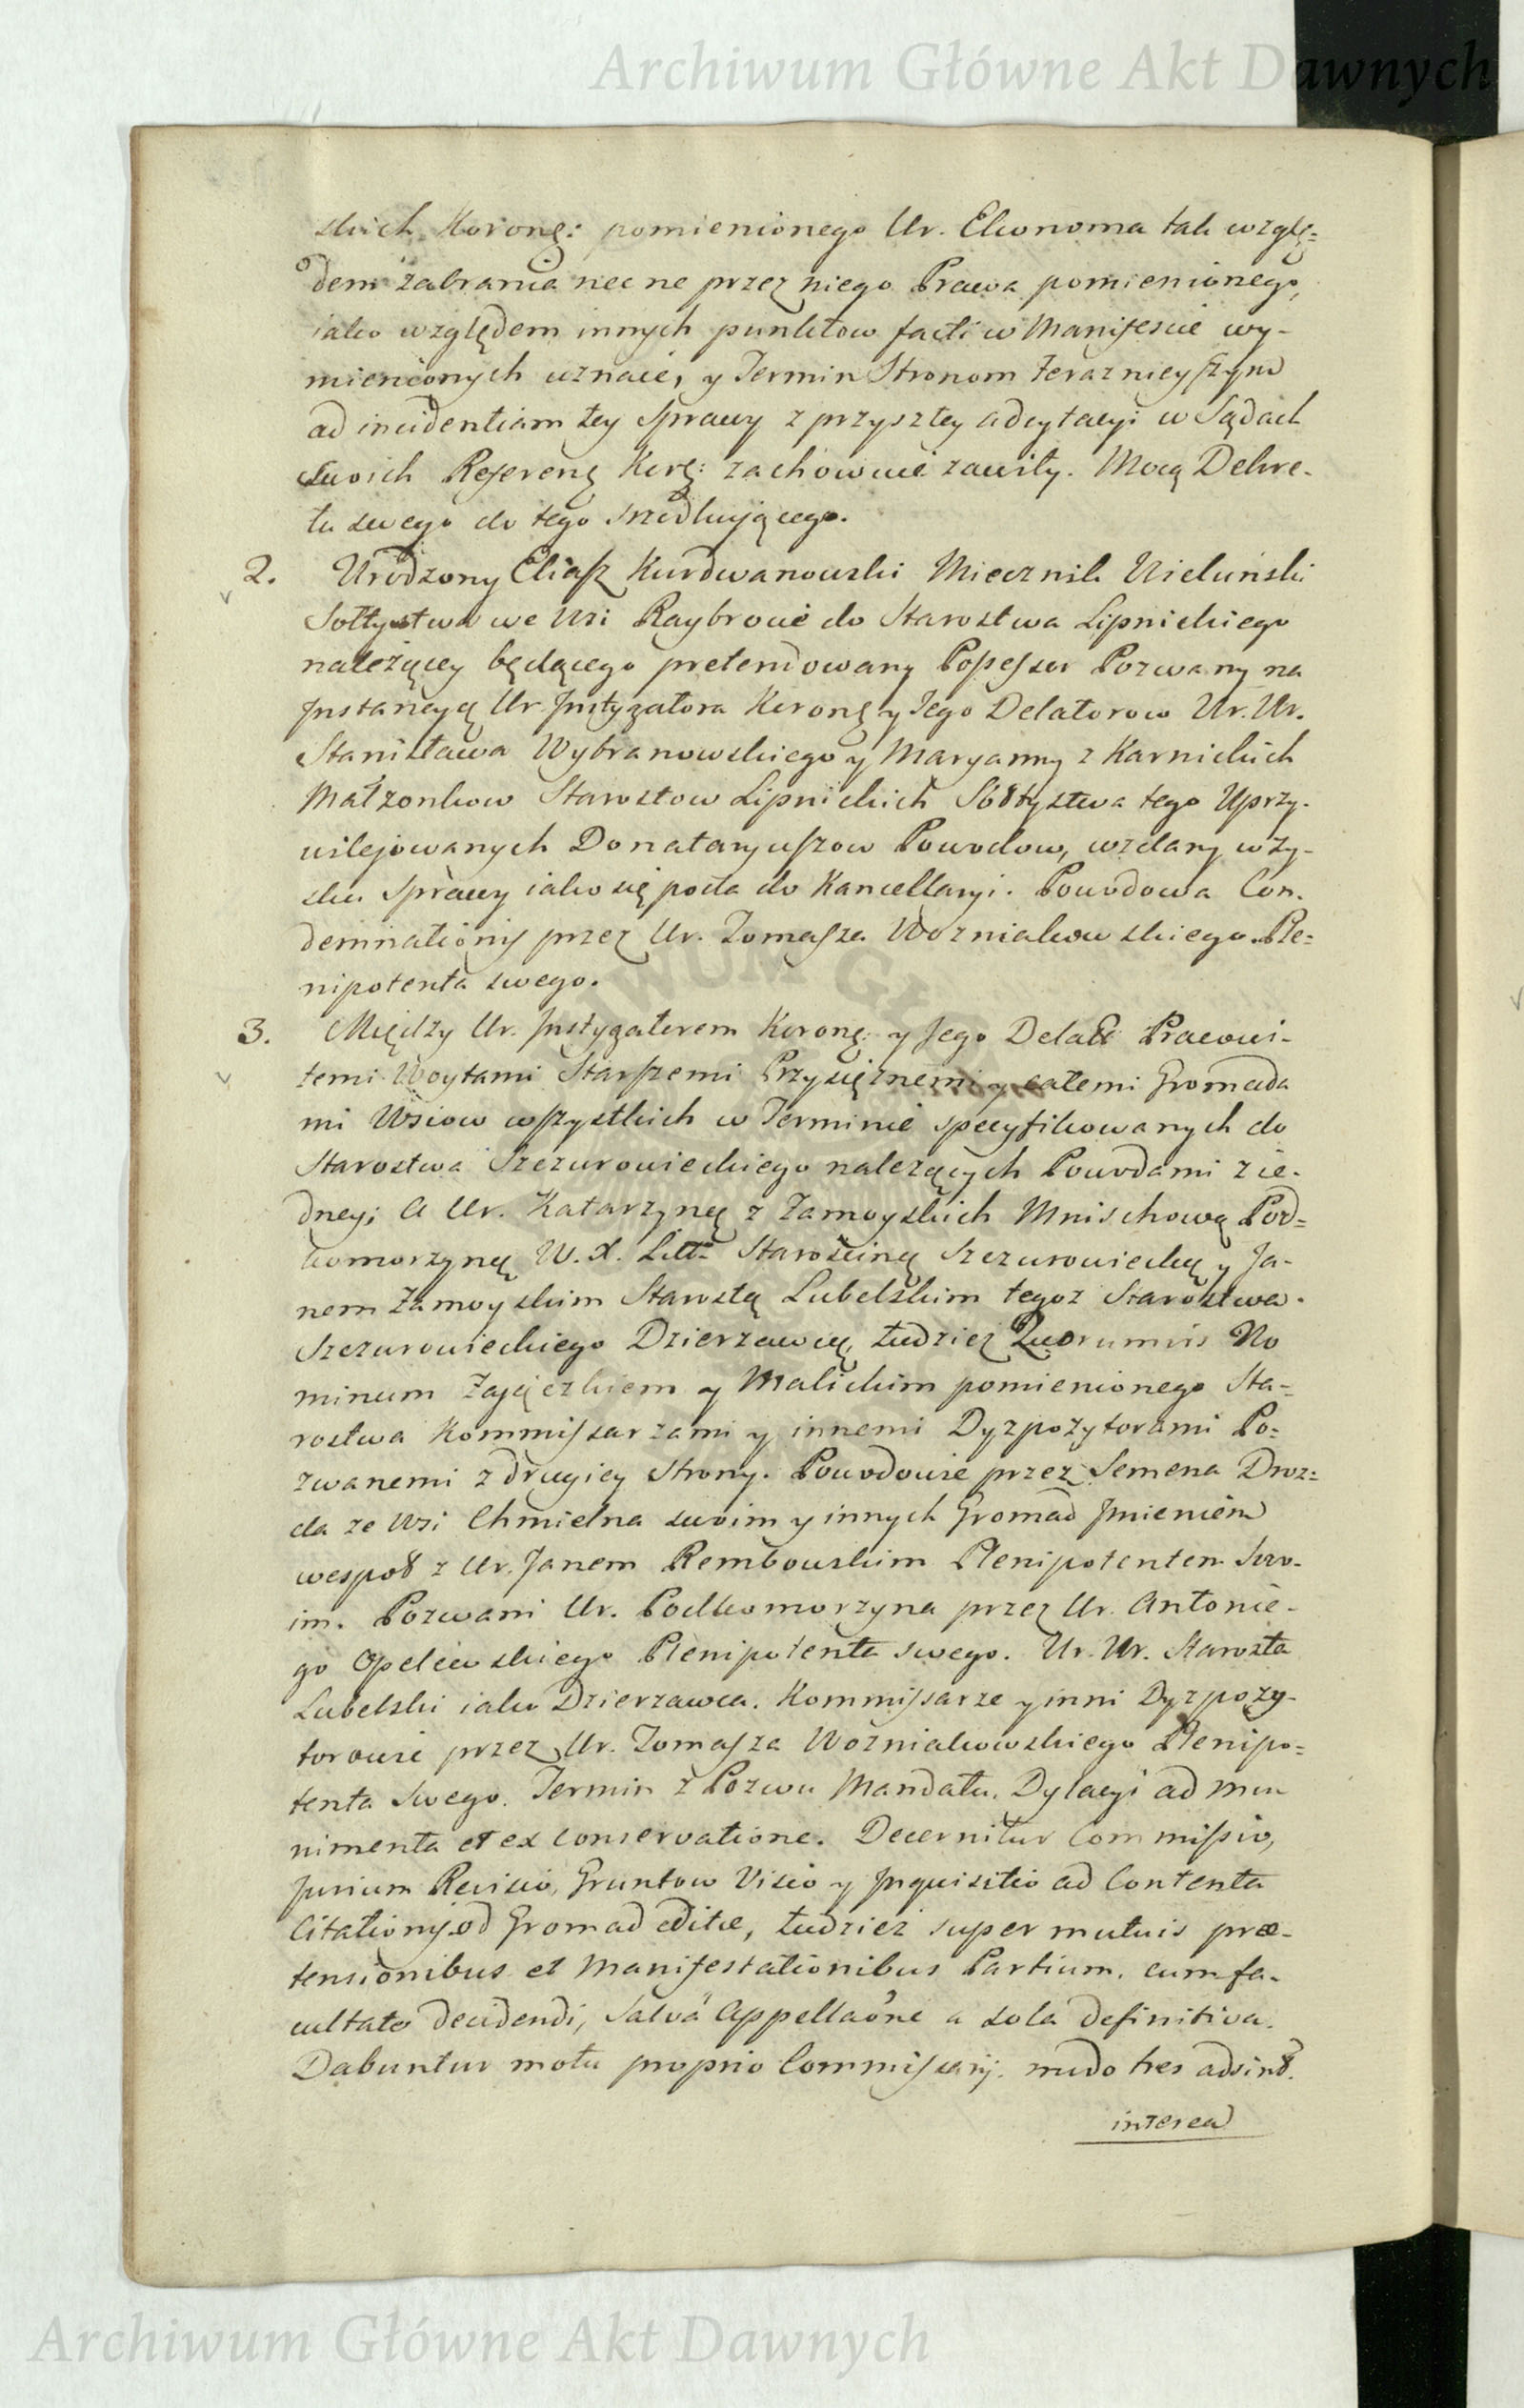 Archiwum Główne Akt Dawnych
skich Koronę: pomienionego Ur. Ekonoma tak wzglę=
dem zabrania nec ne przez niego Prawa pomienionego,
iako względem innych punktow facti w Manifescie wy-
mienionych uznaie, y Termin Stronom teraznieyszym
ad incidentiam tey Sprawy z przyszłey adcytacyi w Sądach
Swoich Referenę Korę: zachowuie zawity. Mocą Dekre-
tu swego do tego srzodkującego.
2. Urodzony Eliasz Kurdwanowski Miecznik Wieluński
Sołtystwa we Wsi Raybrocie do Starostwa Lipnickiego
należącey będącego pretendowany Possessor Pozwany na
Instancyą Ur Instygatora Koronę y Jego Delatorow Ur. Ur.
Stanisława Wybranowskiego y Maryanny z Karnickich
Małżonkow Starostow Lipnickich Sołtystwa tego Uprzy-
wilejowanych Donataryuszow Powodow, wzdany w zy-
sku Sprawy iako się poda do Kancellaryi. Powodowa Con-
demnationis przez Ur. Tomasza Wozniakowskiego Ple=
nipotenta swego.
3. Między Ur. Instygatorem Koronę: y Jego Delato Pracowi-
temi Woytami Starszemi Przysiężnemi y całemi Gromada
mi Wsiow wszystkich w Terminie specyfikowanych do
Starostwa Szczurowieckiego należących Powodami z ie-
dney; A Ur. Katarzyną z Zamoyskich Mniszchową Pod=
komorzyną W. X. Litt: Starościną Szczurowiecką y Ja-
nem Zamoyskim Starostą Lubelskim tegoż Starostwa
Szczurowieckiego Dzierzawcą, tudzież Quorumvis No
minum Zajączkiem y Malickim pomienionego Sta=
rostwa Kommissarzami y innemi Dyzpozytorami Po=
zwanemi z drugiey Strony. Powodowie przez Semena Droz=
da ze Wsi Chmielna swoim y innych Gromad Imieniem
wespoł z Ur. Janem Rembowskim Plenipotentem Swo-
im. Pozwani Ur. Podkomorzyna przez Ur. Antonie-
go Opelewskiego Plenipotenta swego. Ur. Ur. Starosta
Lubelski iako Dzierzawca. Kommissarze y inni Dyzpozy-
torowie przez Ur. Tomasza Wozniakowskiego Plenipo=
tenta Swego. Termin z Pozwu Mandatu, Dylacyi ad mu
nimenta et ex conservatione. Decernitur Commissio,
Jurium Revisio, Gruntow Visio y Inquisitio ad Contenta
Citationis od Gromad editæ, tudzież super mutuis præ-
tensionibus et Manifestationibus Partium, cum fa-
cultate decidendi, salvâ Appellaõne a sola definitiva.
Dabuntur motu proprio Commissarij. mdo tres adsint.
interea
Archiwum Główne Akt Dawnych